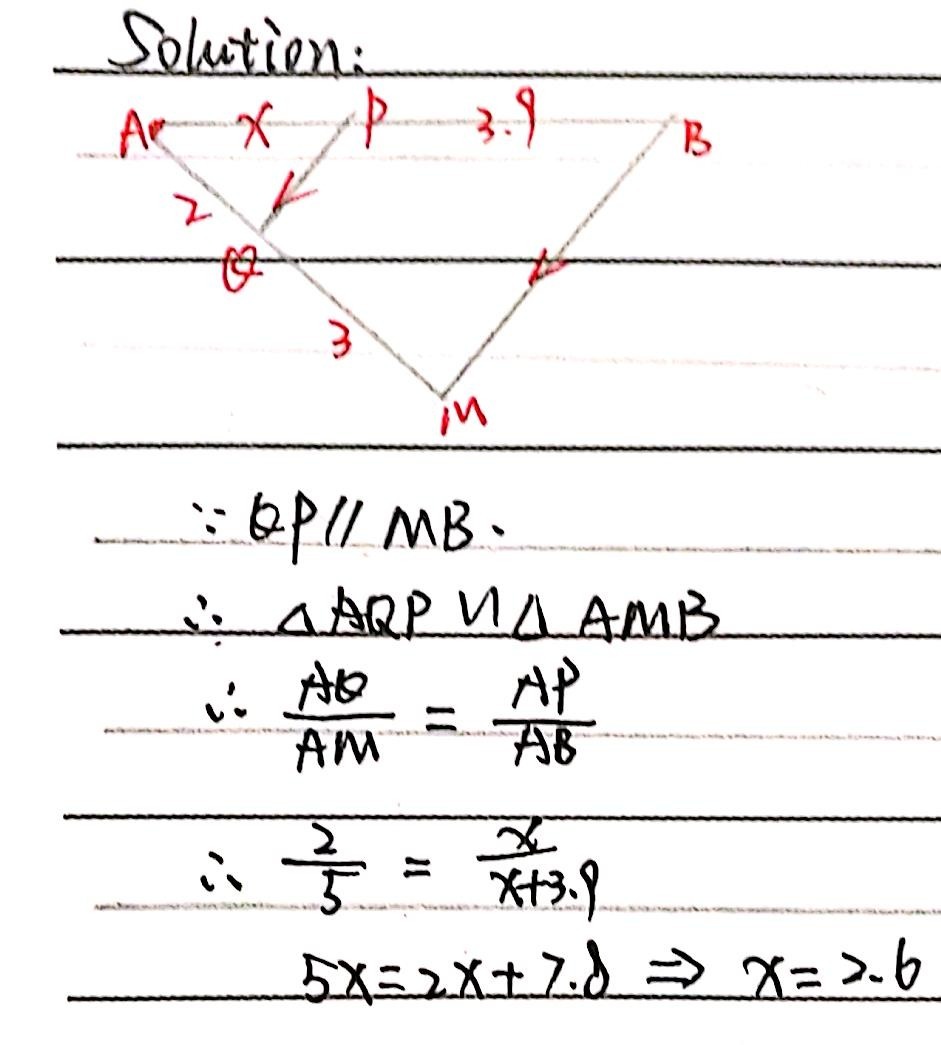 Solution:
A x P 3.9 B
2
Q
3
M
∵ QP // MB.
∴ △AQP ∽ △AMB
∴ AQ/AM = AP/AB
∴ 2/5 = x/x+3.9
5x=2x+7.8 ⇒ x=2.6